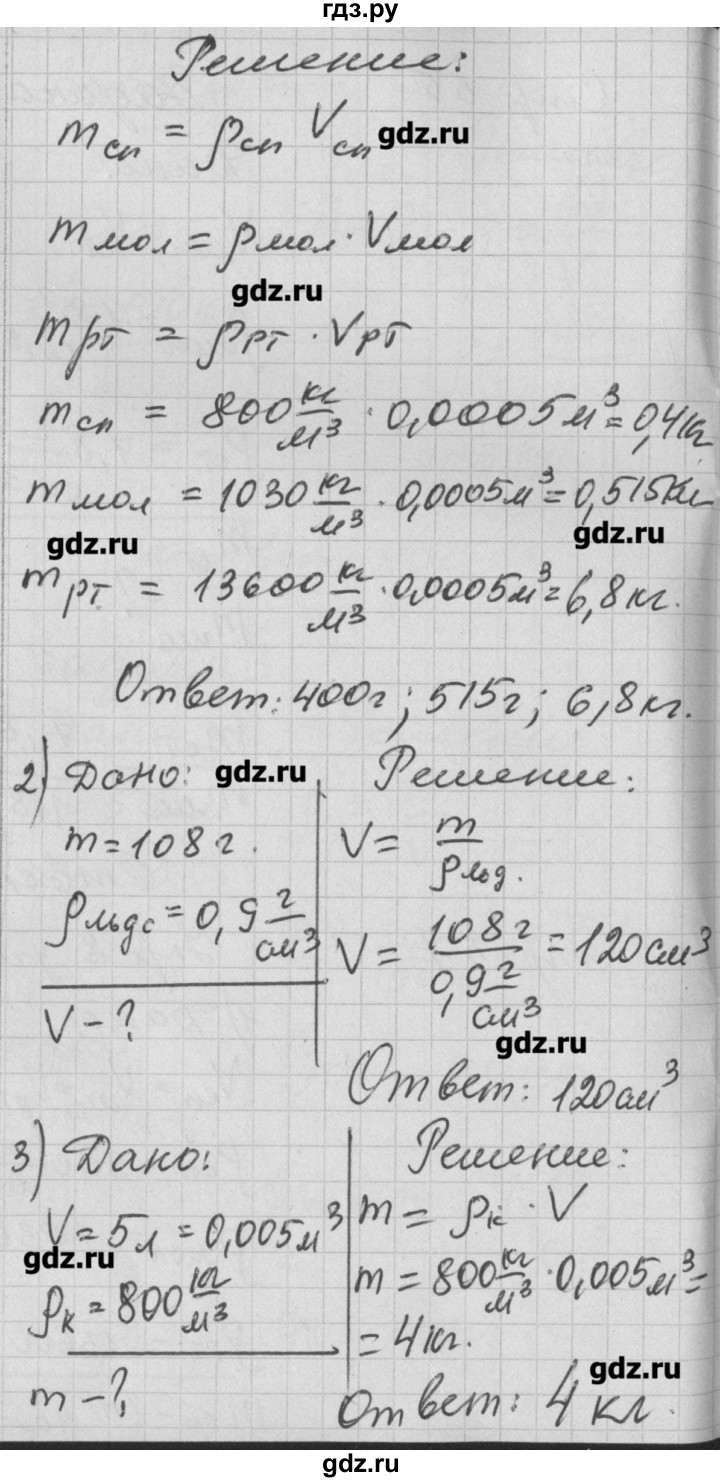 гдз.ру
Решение:
mсп = ρсп Vсп
gdz.ru
mмол = ρмол · Vмол
gdz.ru
mрт = ρрт · Vрт
mсп = 800 кг/м³ · 0,0005 м³ = 0,4 кг
mмол = 1030 кг/м³ · 0,0005 м³ = 0,515 кг
gdz.ru
gdz.ru
mрт = 13600 кг/м³ · 0,0005 м³ = 6,8 кг.
Ответ: 400 г; 515 г; 6,8 кг.
2) Дано:
gdz.ru
m = 108 г.
ρльда = 0,9 г/см³
V - ?
Решение:
V = m/ρльд.
V = 108 г / 0,9 г/см³ = 120 см³
gdz.ru
Ответ: 120 см³
3) Дано:
V = 5 л = 0,005 м³
gdz.ru
ρк = 800 кг/м³
m - ?
Решение:
m = ρк · V
m = 800 кг/м³ · 0,005 м³ =
= 4 кг.
gdz.ru
Ответ: 4 кг.
gdz.ru